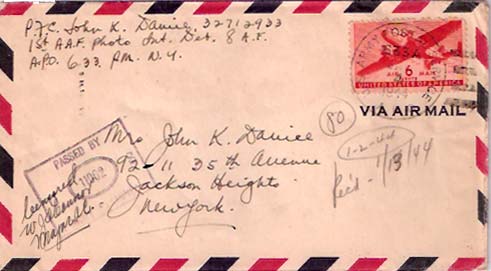 P.F.C. John K. Daniee, 32712933
1st A.A.F. Photo Int. Det. 8 A.F.
A.P.O. 633. P.M. N.Y.
ARMY POST
AIR MAIL
6
CENTS
UNITED STATES OF AMERICA
VIA AIR MAIL
80
1-2-44
Rec'd - 1/13/44
PASSED BY
11202
Censored
Mrs John K. Daniee
92-11 35th Avenue
Jackson Heights
New York.